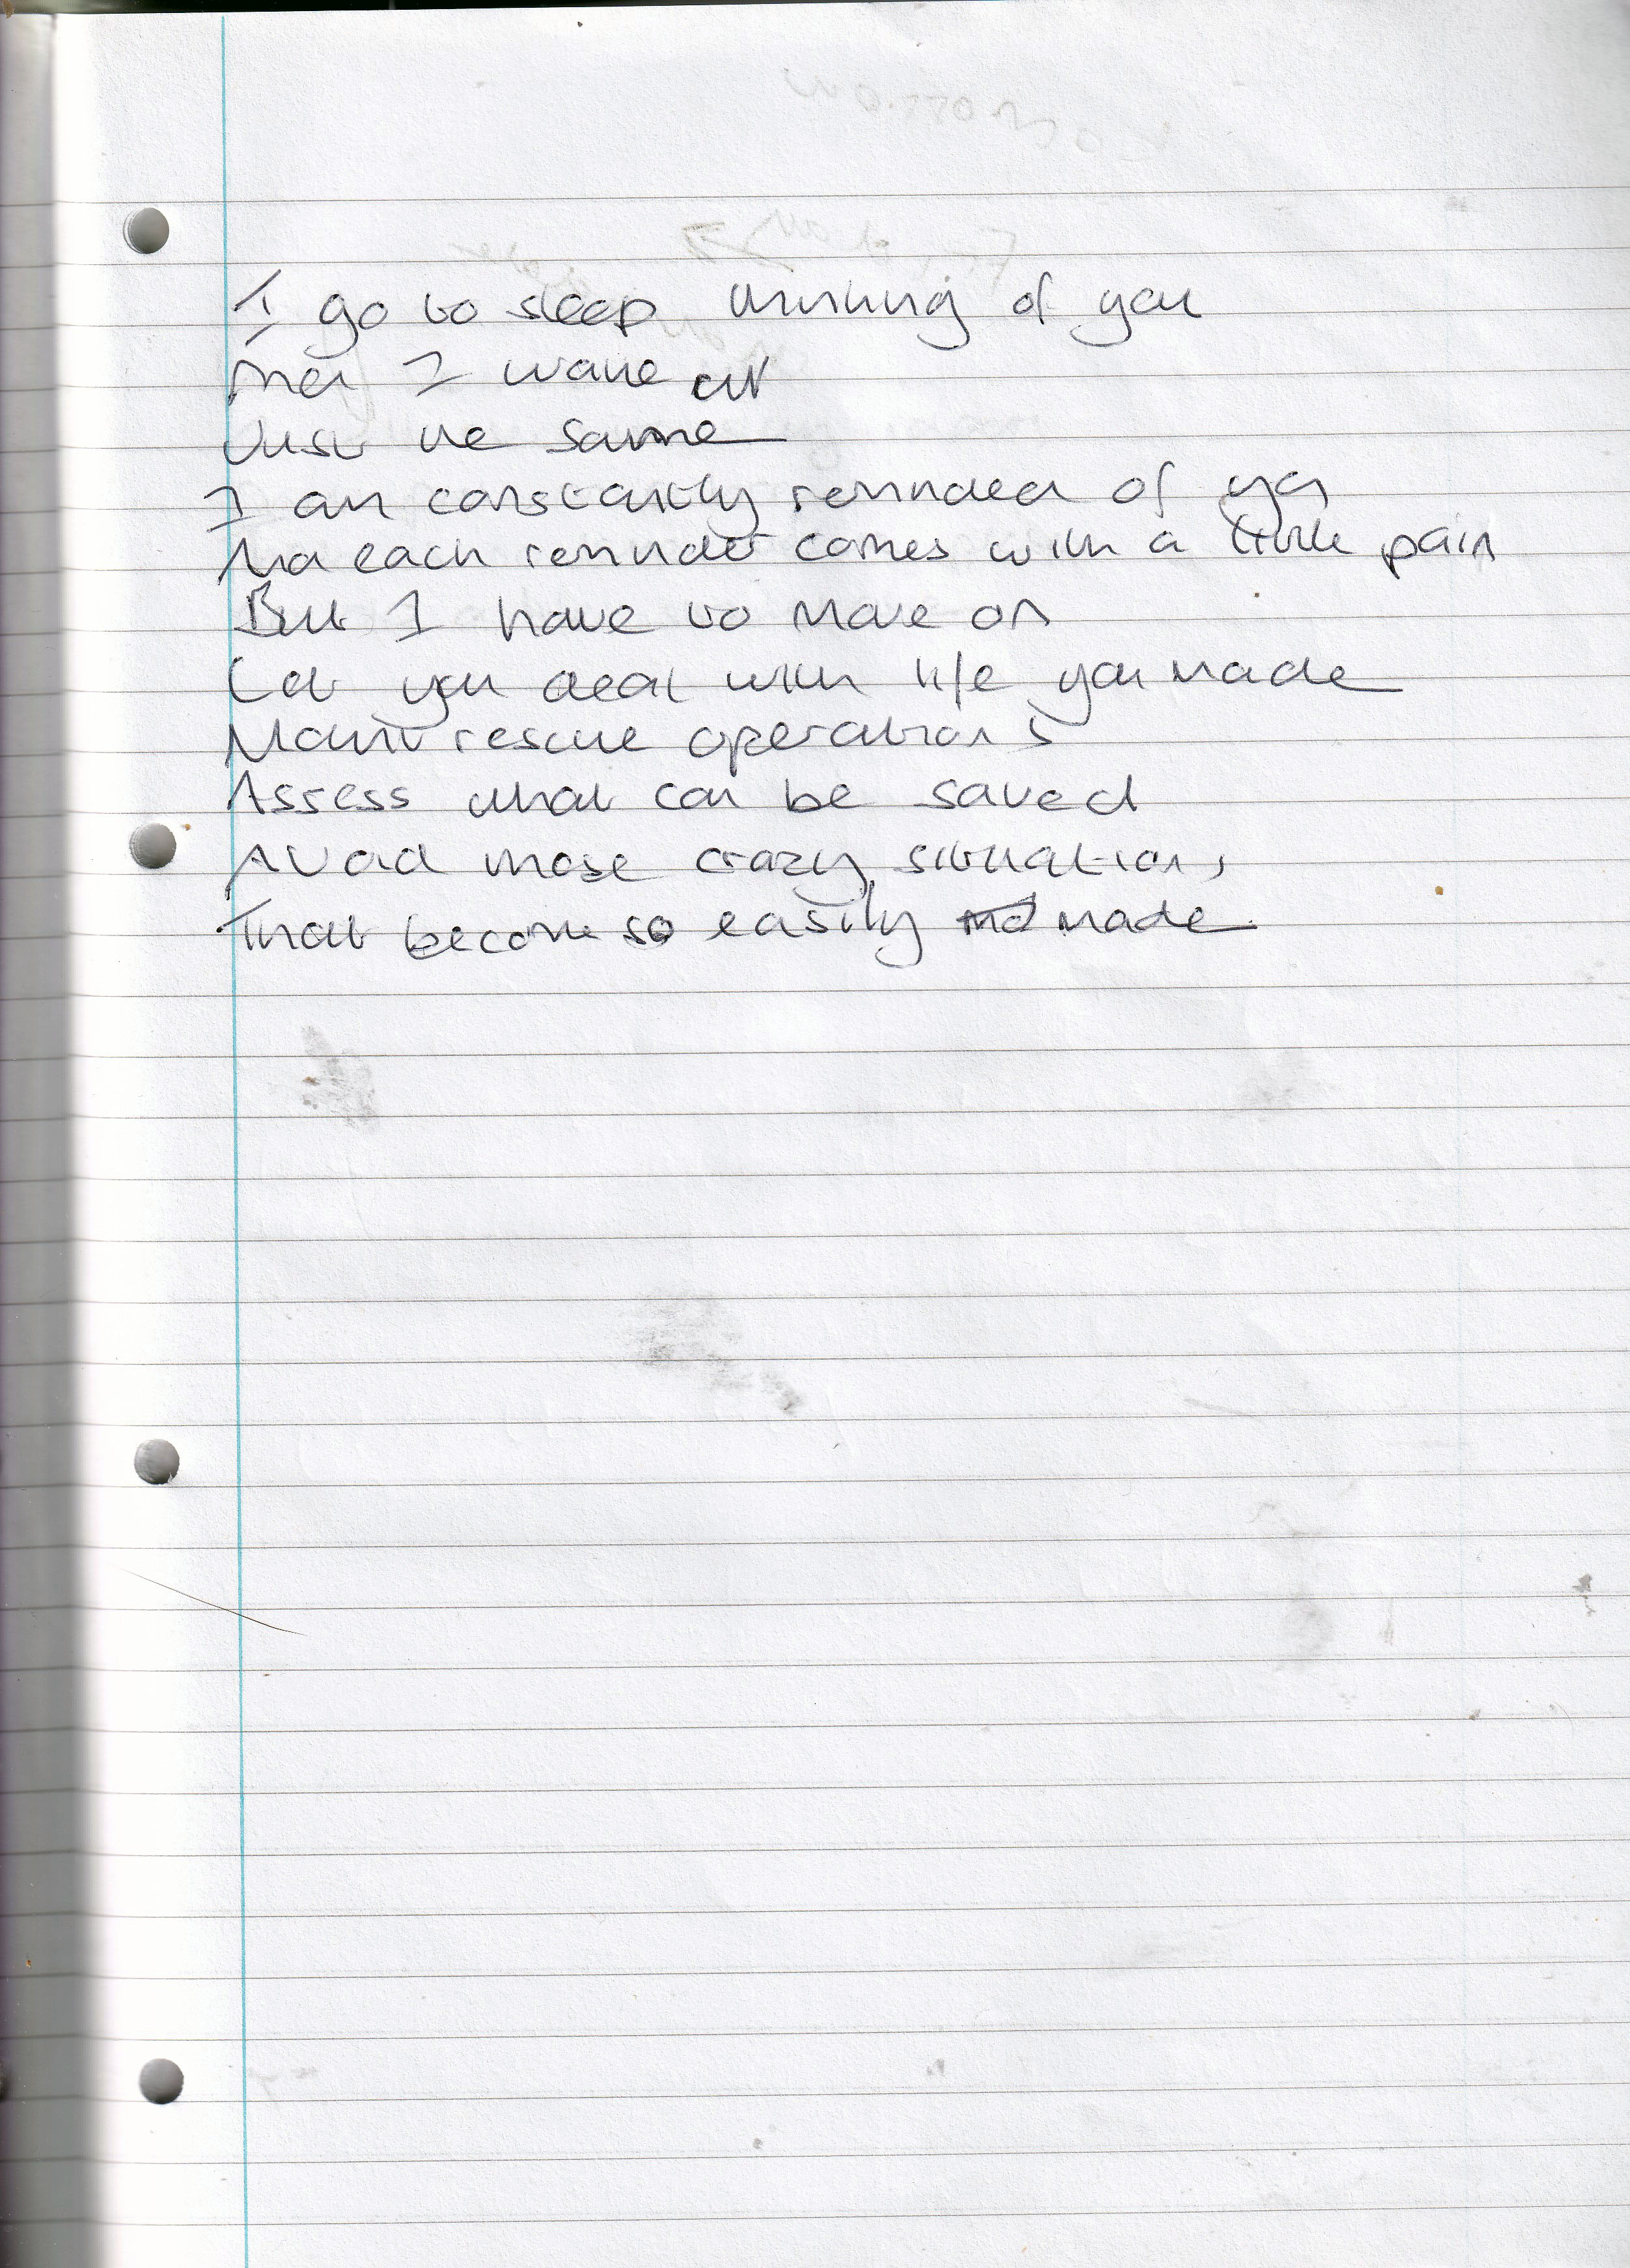 I go to sleep thinking of you
And I wake up
Just the same
I am constantly reminded of you
And each reminder comes with a little pain
But I have to move on
Let you deal with life you made
Mount rescue operations
Assess what can be saved
Avoid those crazy situations
That become so easily made